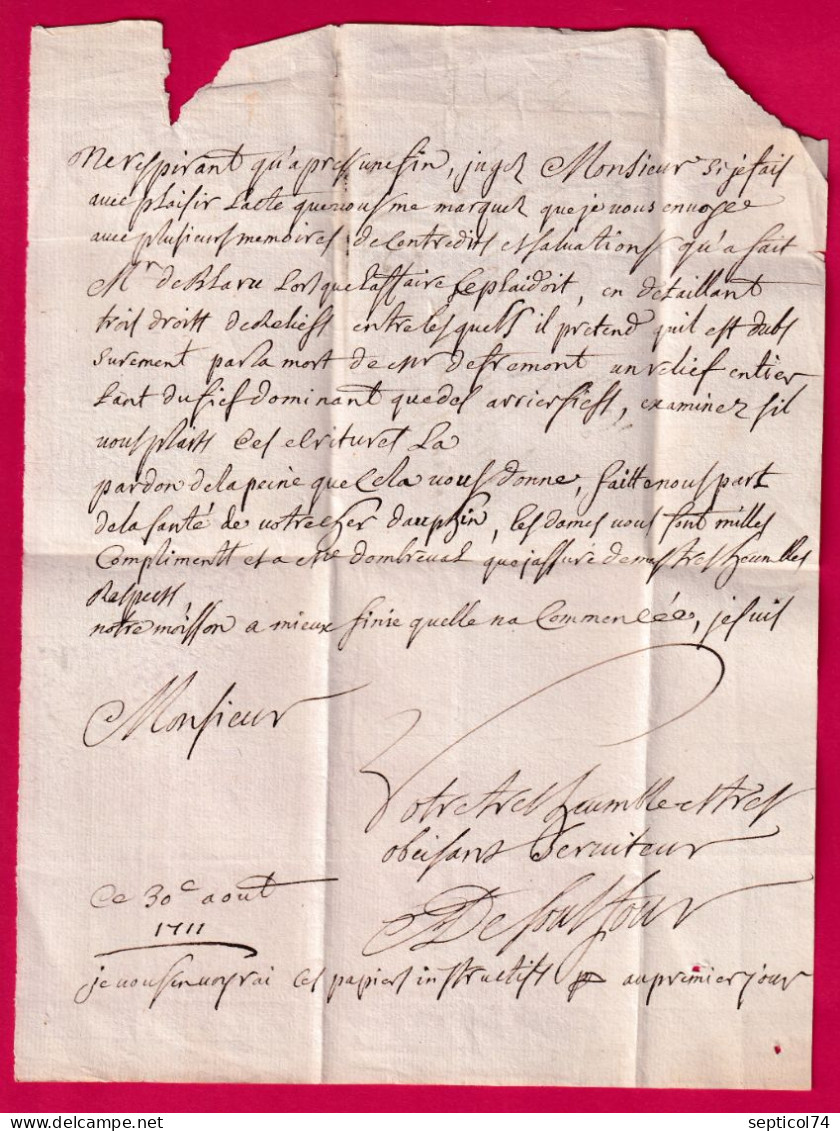 ne respirant qu'apres une fin, jugez Monsieur si je fais
avec plaisir lacte que vous me marquez que je vous envoye
avec plusieurs memoires de Contredits et saluations qu'a fait
Mr de Blaru Lors que Laffaire se plaidoit, en detaillant
trois droits de Reliefs entre lesquels il pretend quil est dubs
surement par la mort de Mr defremont un relief entier
tant du fief dominant que des arrierfiefs, examinez sil
vous plaist Ces escritures La
pardon de la peine que Cela vous donne, faitte nous part
de la santé de votre cher dauphin, les dames vous font milles
Compliments et a Me dombreval que jassure de mes tres heumbles
Respects,
notre moisson a mieux finie quelle na Commencée, je suis
Monsieur
Votre tres heumble et tres
obeisant Serviteur
De
Ce 30e aout
1711
je vous envoyrai Ces papiers instructifs au premier jour
SOLD BY: septicol74